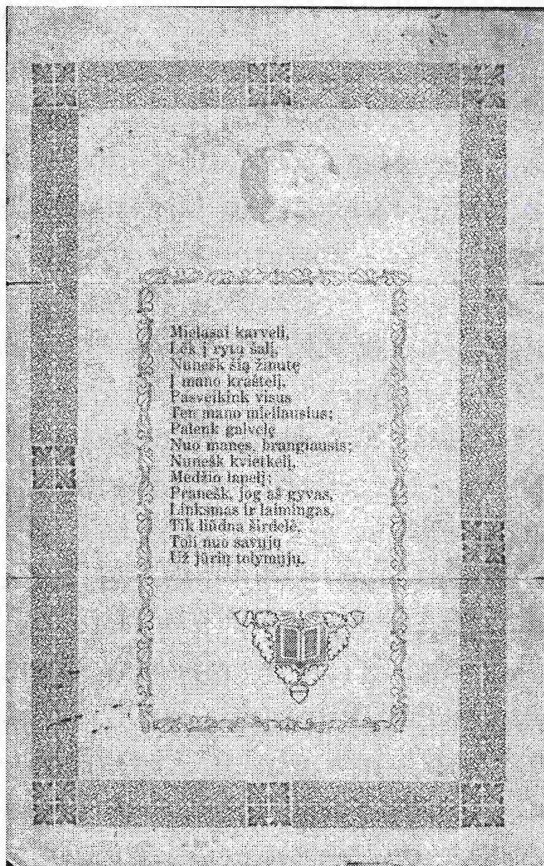 Mielasai karveli,
Lėk į rytų šalį,
Nunešk šią žinutę
Į mano kraštelį,
Pasveikink visus
Ten mano mieliausius;
Palenk galvelę
Nuo manęs, brangiausis;
Nunešk kvietkelį,
Medžio lapelį;
Pranešk, jog aš gyvas,
Linksmas ir laimingas,
Tik liūdna širdelė,
Toli nuo savųjų
Už jūrių tolymųjų.